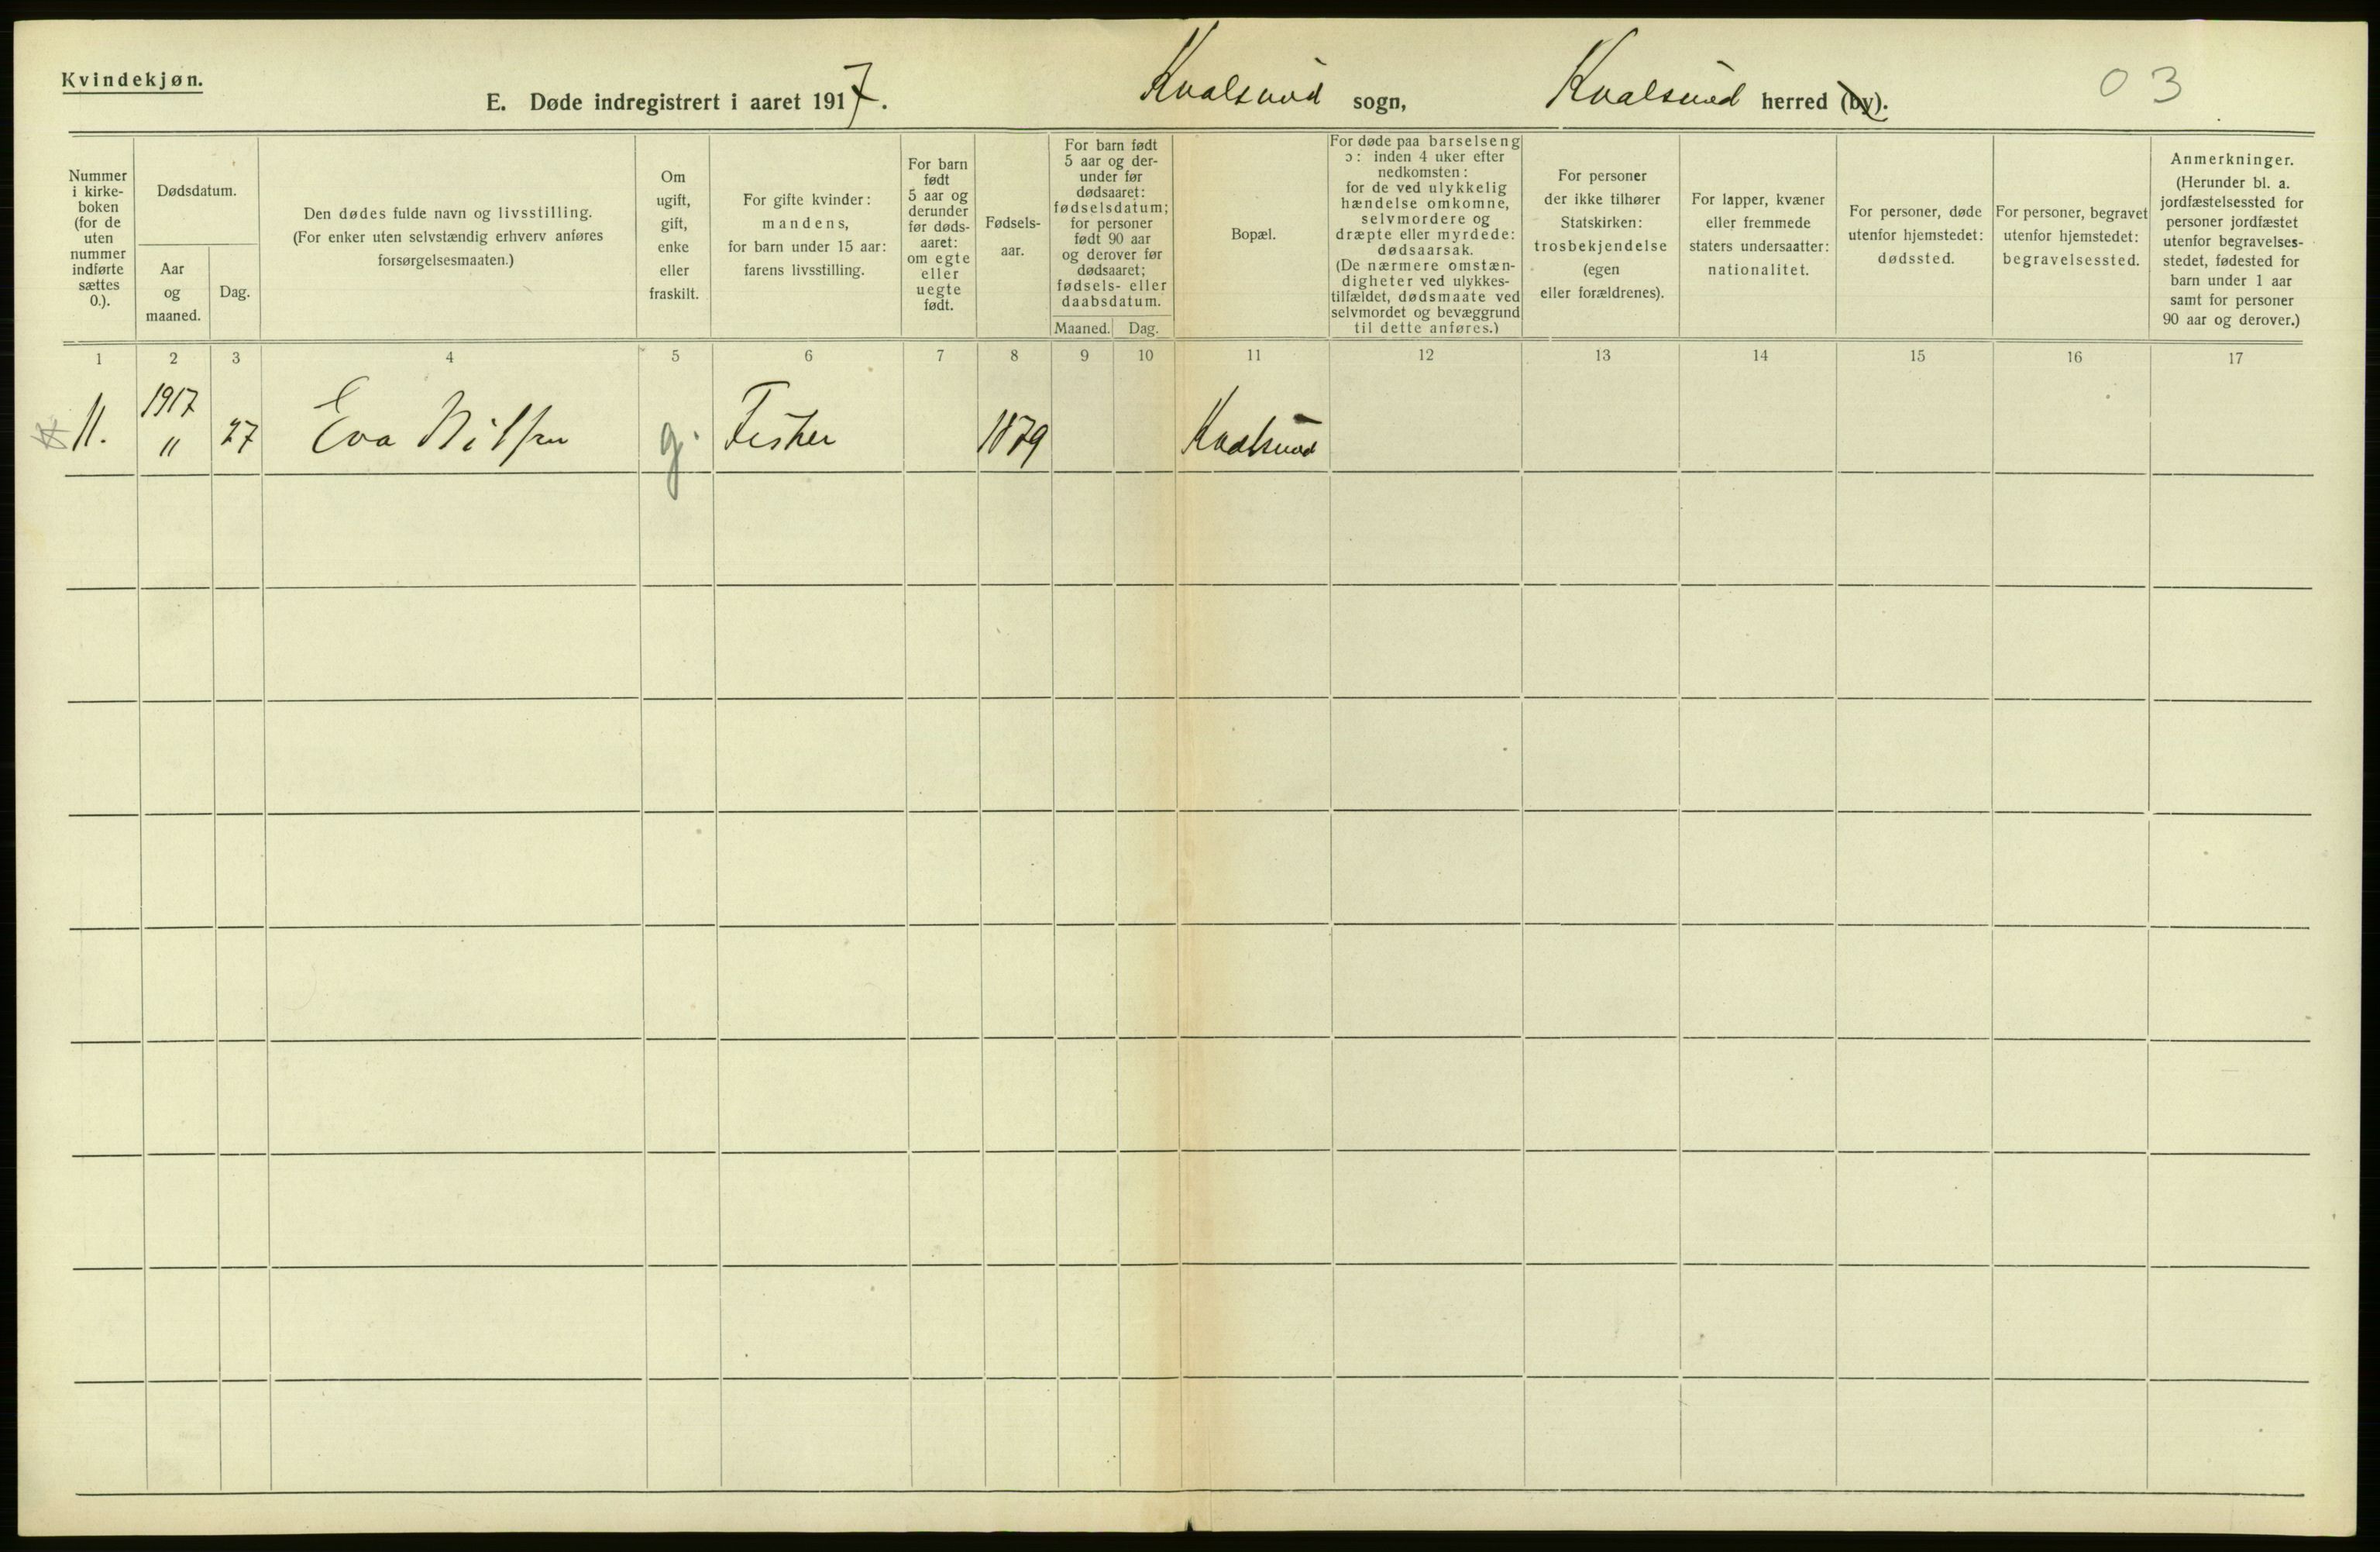 Kvindekjøn.
E. Døde indregistrert i aaret 1917. Kvalsund sogn, Kvalsund herred (by). 03
Nummer
i kirke-
boken
(for de
uten
nummer
indførte
sættes
0.).
Dødsdatum.
Aar
og
maaned.
Dag.
Den dødes fulde navn og livsstilling.
(For enker uten selvstændig erhverv anføres
forsørgelsesmaaten.)
Om
ugift,
gift,
enke
eller
fraskilt.
For gifte kvinder:
mandens,
for barn under 15 aar:
farens livsstilling.
For barn
født
5 aar og
derunder
før døds-
aaret:
om egte
eller
uegte
født.
Fødsels-
aar.
For barn født
5 aar og der-
under før
dødsaaret:
fødselsdatum;
for personer
født 90 aar
og derover før
dødsaaret;
fødsels- eller
daabsdatum.
Maaned. Dag.
Bopæl.
For døde paa barselseng
ɔ: inden 4 uker efter
nedkomsten:
for de ved ulykkelig
hændelse omkomne,
selvmordere og
dræpte eller myrdede:
dødsaarsak.
(De nærmere omstæn-
digheter ved ulykkes-
tilfældet, dødsmaate ved
selvmordet og bevæggrund
til dette anføres.)
For personer
der ikke tilhører
Statskirken:
trosbekjendelse
(egen
eller forældrenes).
For lapper, kvæner
eller fremmede
staters undersaatter:
nationalitet.
For personer, døde
utenfor hjemstedet:
dødssted.
For personer, begravet
utenfor hjemstedet:
begravelsessted.
Anmerkninger.
(Herunder bl. a.
jordfæstelsessted for
personer jordfæstet
utenfor begravelses-
stedet, fødested for
barn under 1 aar
samt for personer
90 aar og derover.)
1 2 3 4 5 6 7 8 9 10 11 12 13 14 15 16 17
1917
11. 11 27 Eva Nilsen g. Fisker 1879 Kvalsund